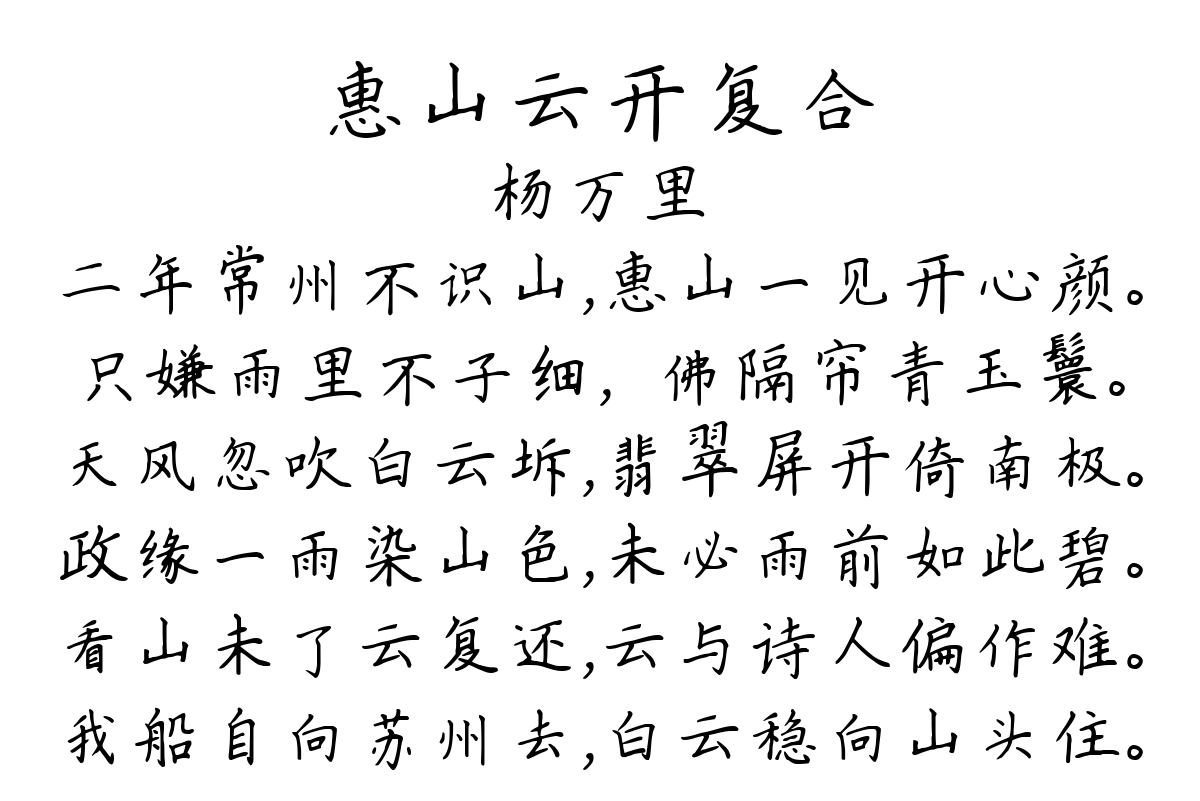 惠山云开复合
杨万里
二年常州不识山,惠山一见开心颜。
只嫌雨里不子细,佛隔帘青玉鬟。
天风忽吹白云坼,翡翠屏开倚南极。
政缘一雨染山色,未必雨前如此碧。
看山未了云复还,云与诗人偏作难。
我船自向苏州去,白云稳向山头住。